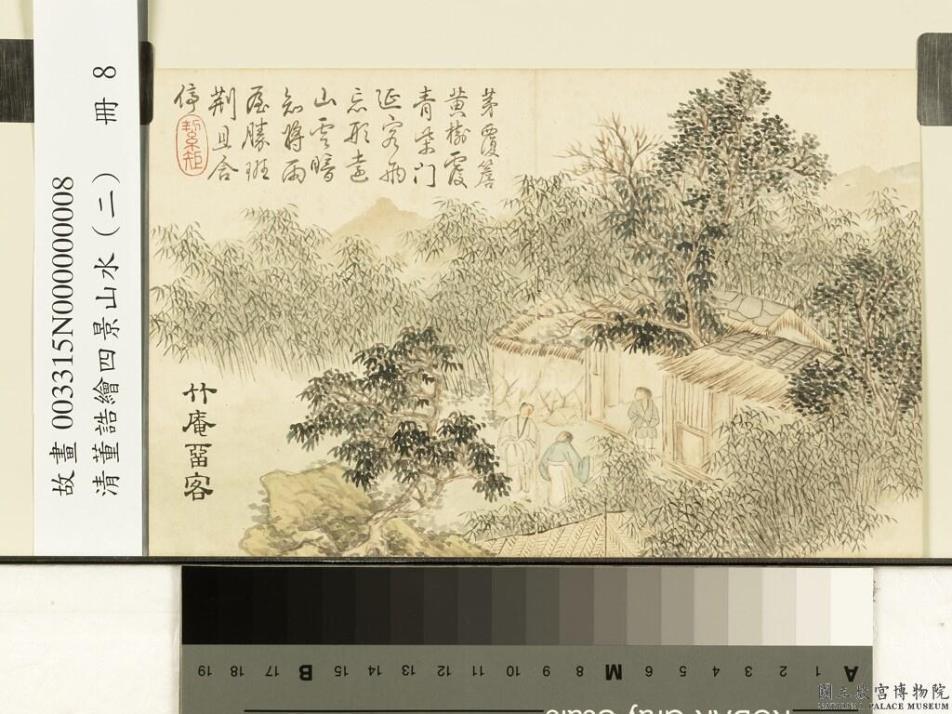 故畫 003315N000000008
清董誥繪四景山水(二) 冊 8
茅覆簷
黃樹覆
青柴門
延客兩
忘形遠
山雲暗
知將雨
屋勝班
荆且合
停
竹庵畱客
A 1 2 3 4 5 6 M 8 9 10 11 12 13 14 15 B 17 18 19
國立故宮博物院
NATIONAL PALACE MUSEUM